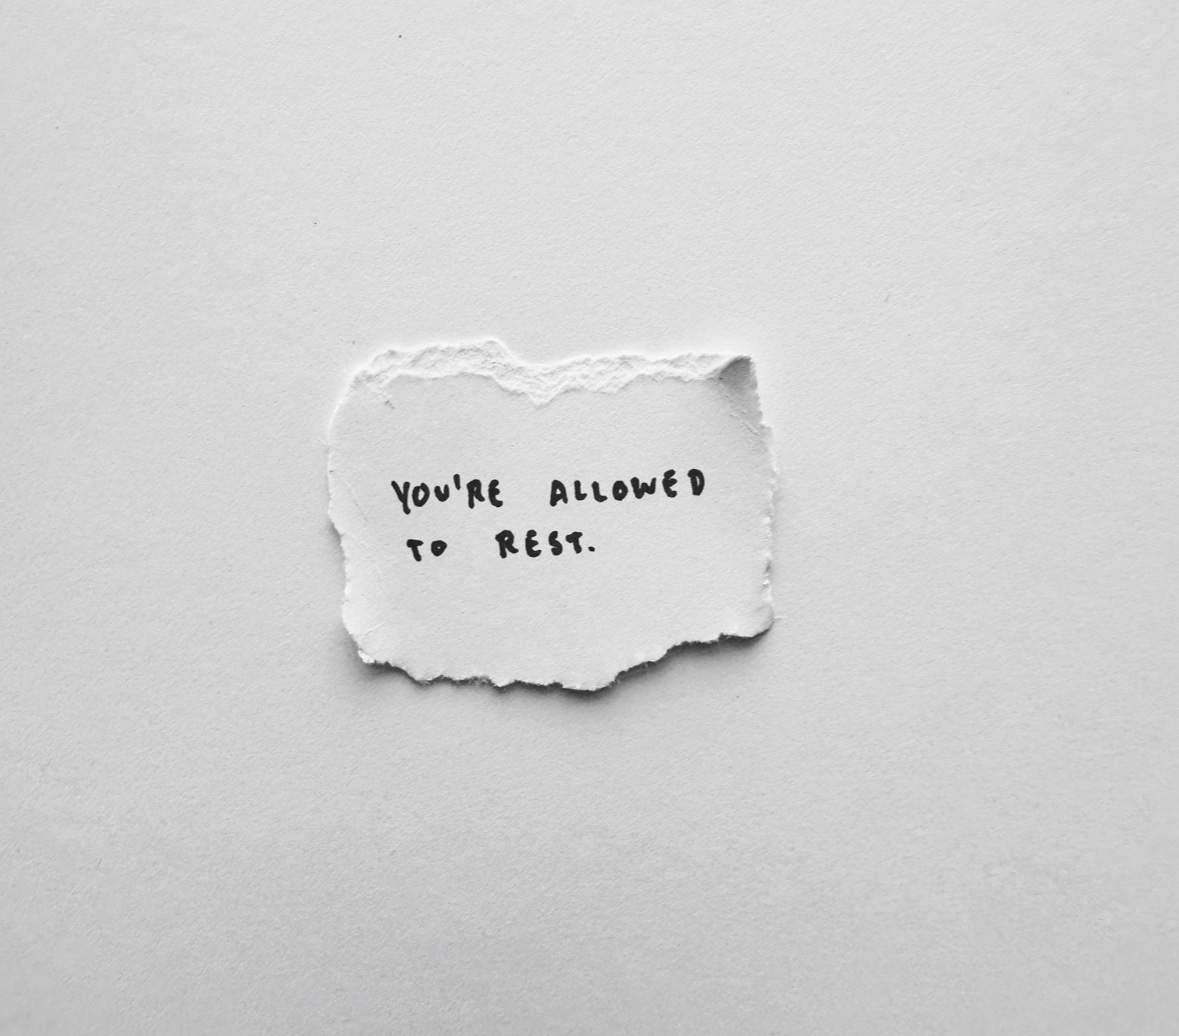 YOU'RE ALLOWED
TO REST.